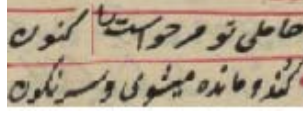 حاملی تو مر حواست را کنون
کند و مانده میشوی و سرنگون